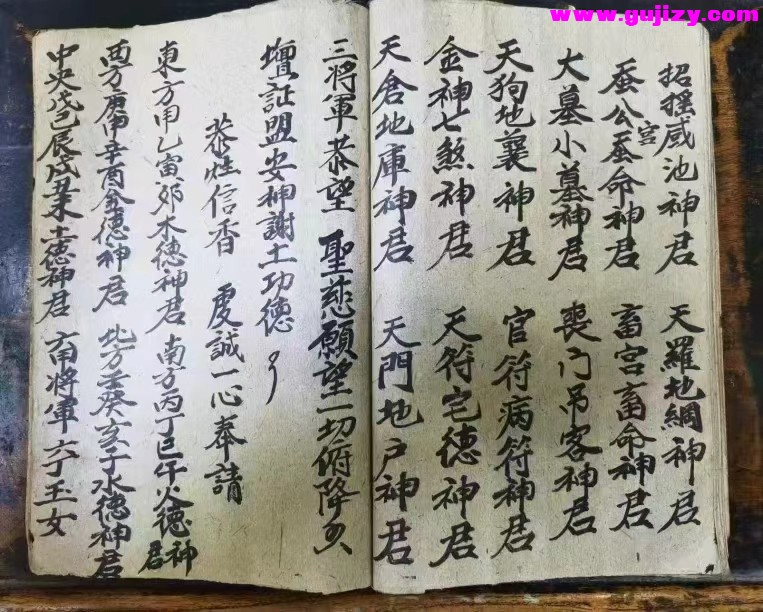 www.gujizy.com
招撲咸池神君 天羅地網神君
蚕公蚕命神君 畜宮畜命神君
宮
大墓小墓神君 喪门吊客神君
天狗地襄神君 官符病符神君
金神七煞神君 天符宅德神君
天倉地庫神君 天門地户神君
三將軍恭望 聖慈願望一切俯降
壇証盟安神謝土功德
恭性信香 虔誠一心奉請
東方甲乙寅卯木德神君 南方丙丁巳午火德神君
西方庚申辛酉金德神君 北方壬癸亥子水德神君
中央戊己辰戌丑未土德神君 六甲將軍六丁玉女